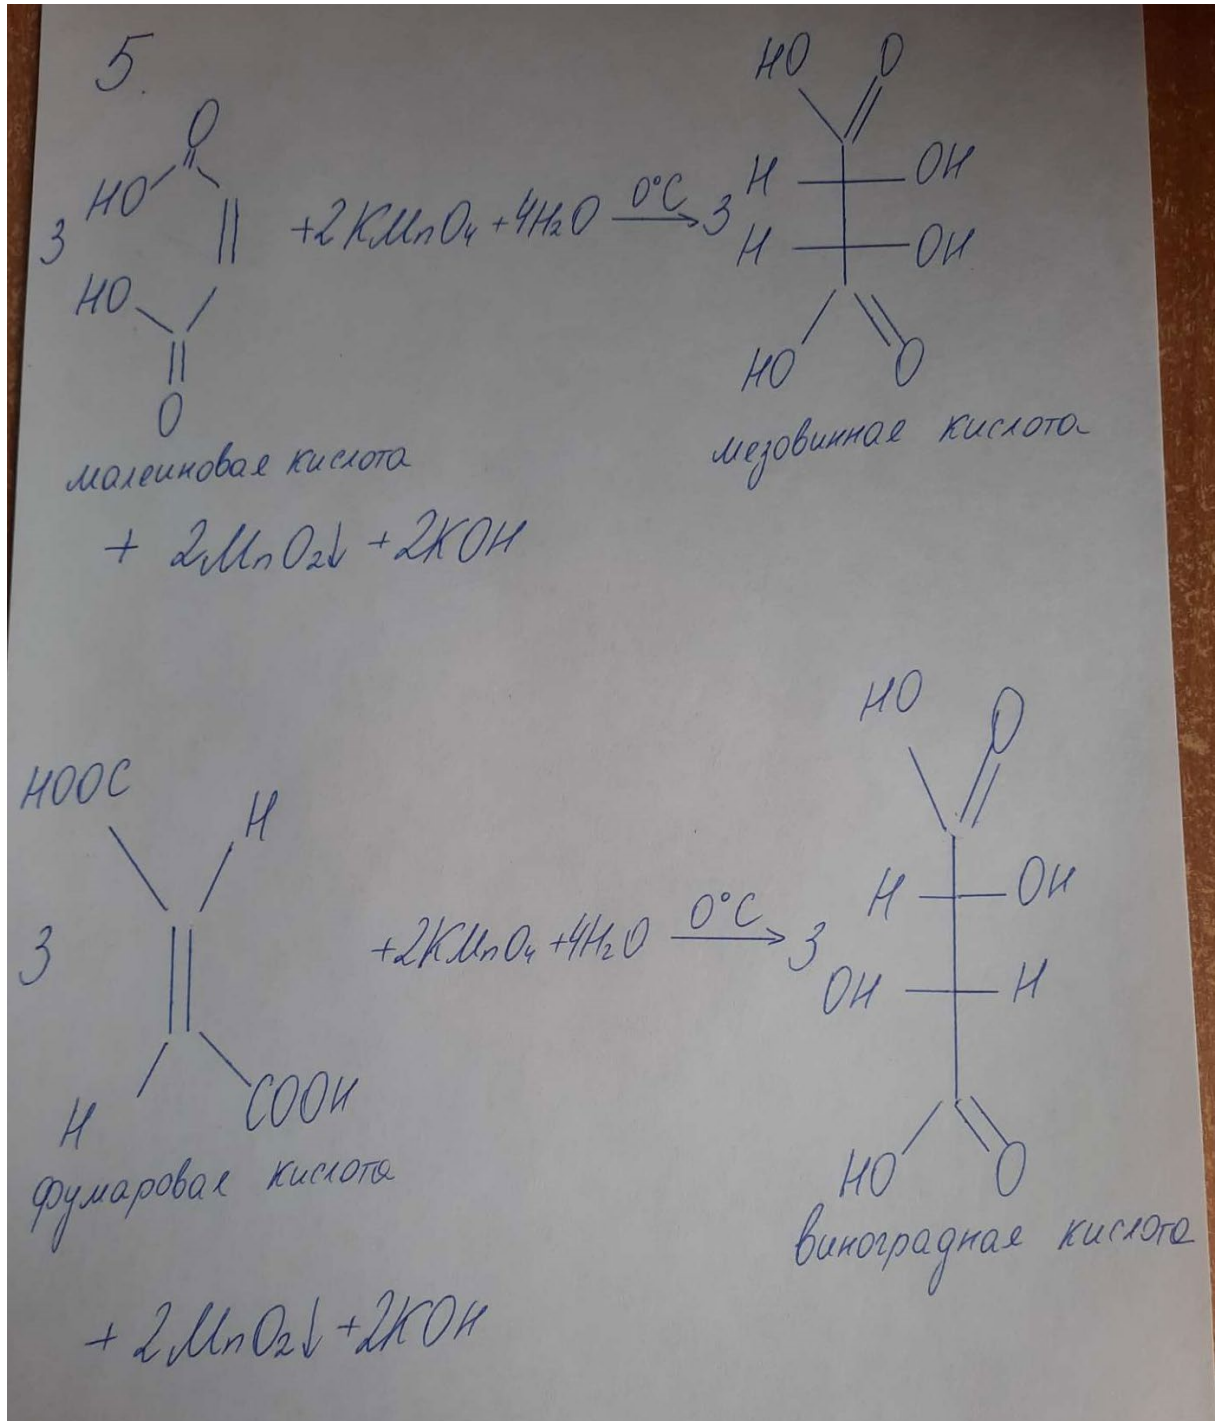 5.
O
HO
3
HO
O
+2KMnO₄ +4H₂O 0°C 3
HO O
H OH
H OH
HO O
малеиновая кислота
мезовинная кислота
+ 2MnO₂↓ +2KOH
HOOC H
3
H COOH
+2KMnO₄ +4H₂O 0°C 3
HO O
H OH
OH H
HO O
фумаровая кислота
виноградная кислота
+ 2MnO₂↓ +2KOH